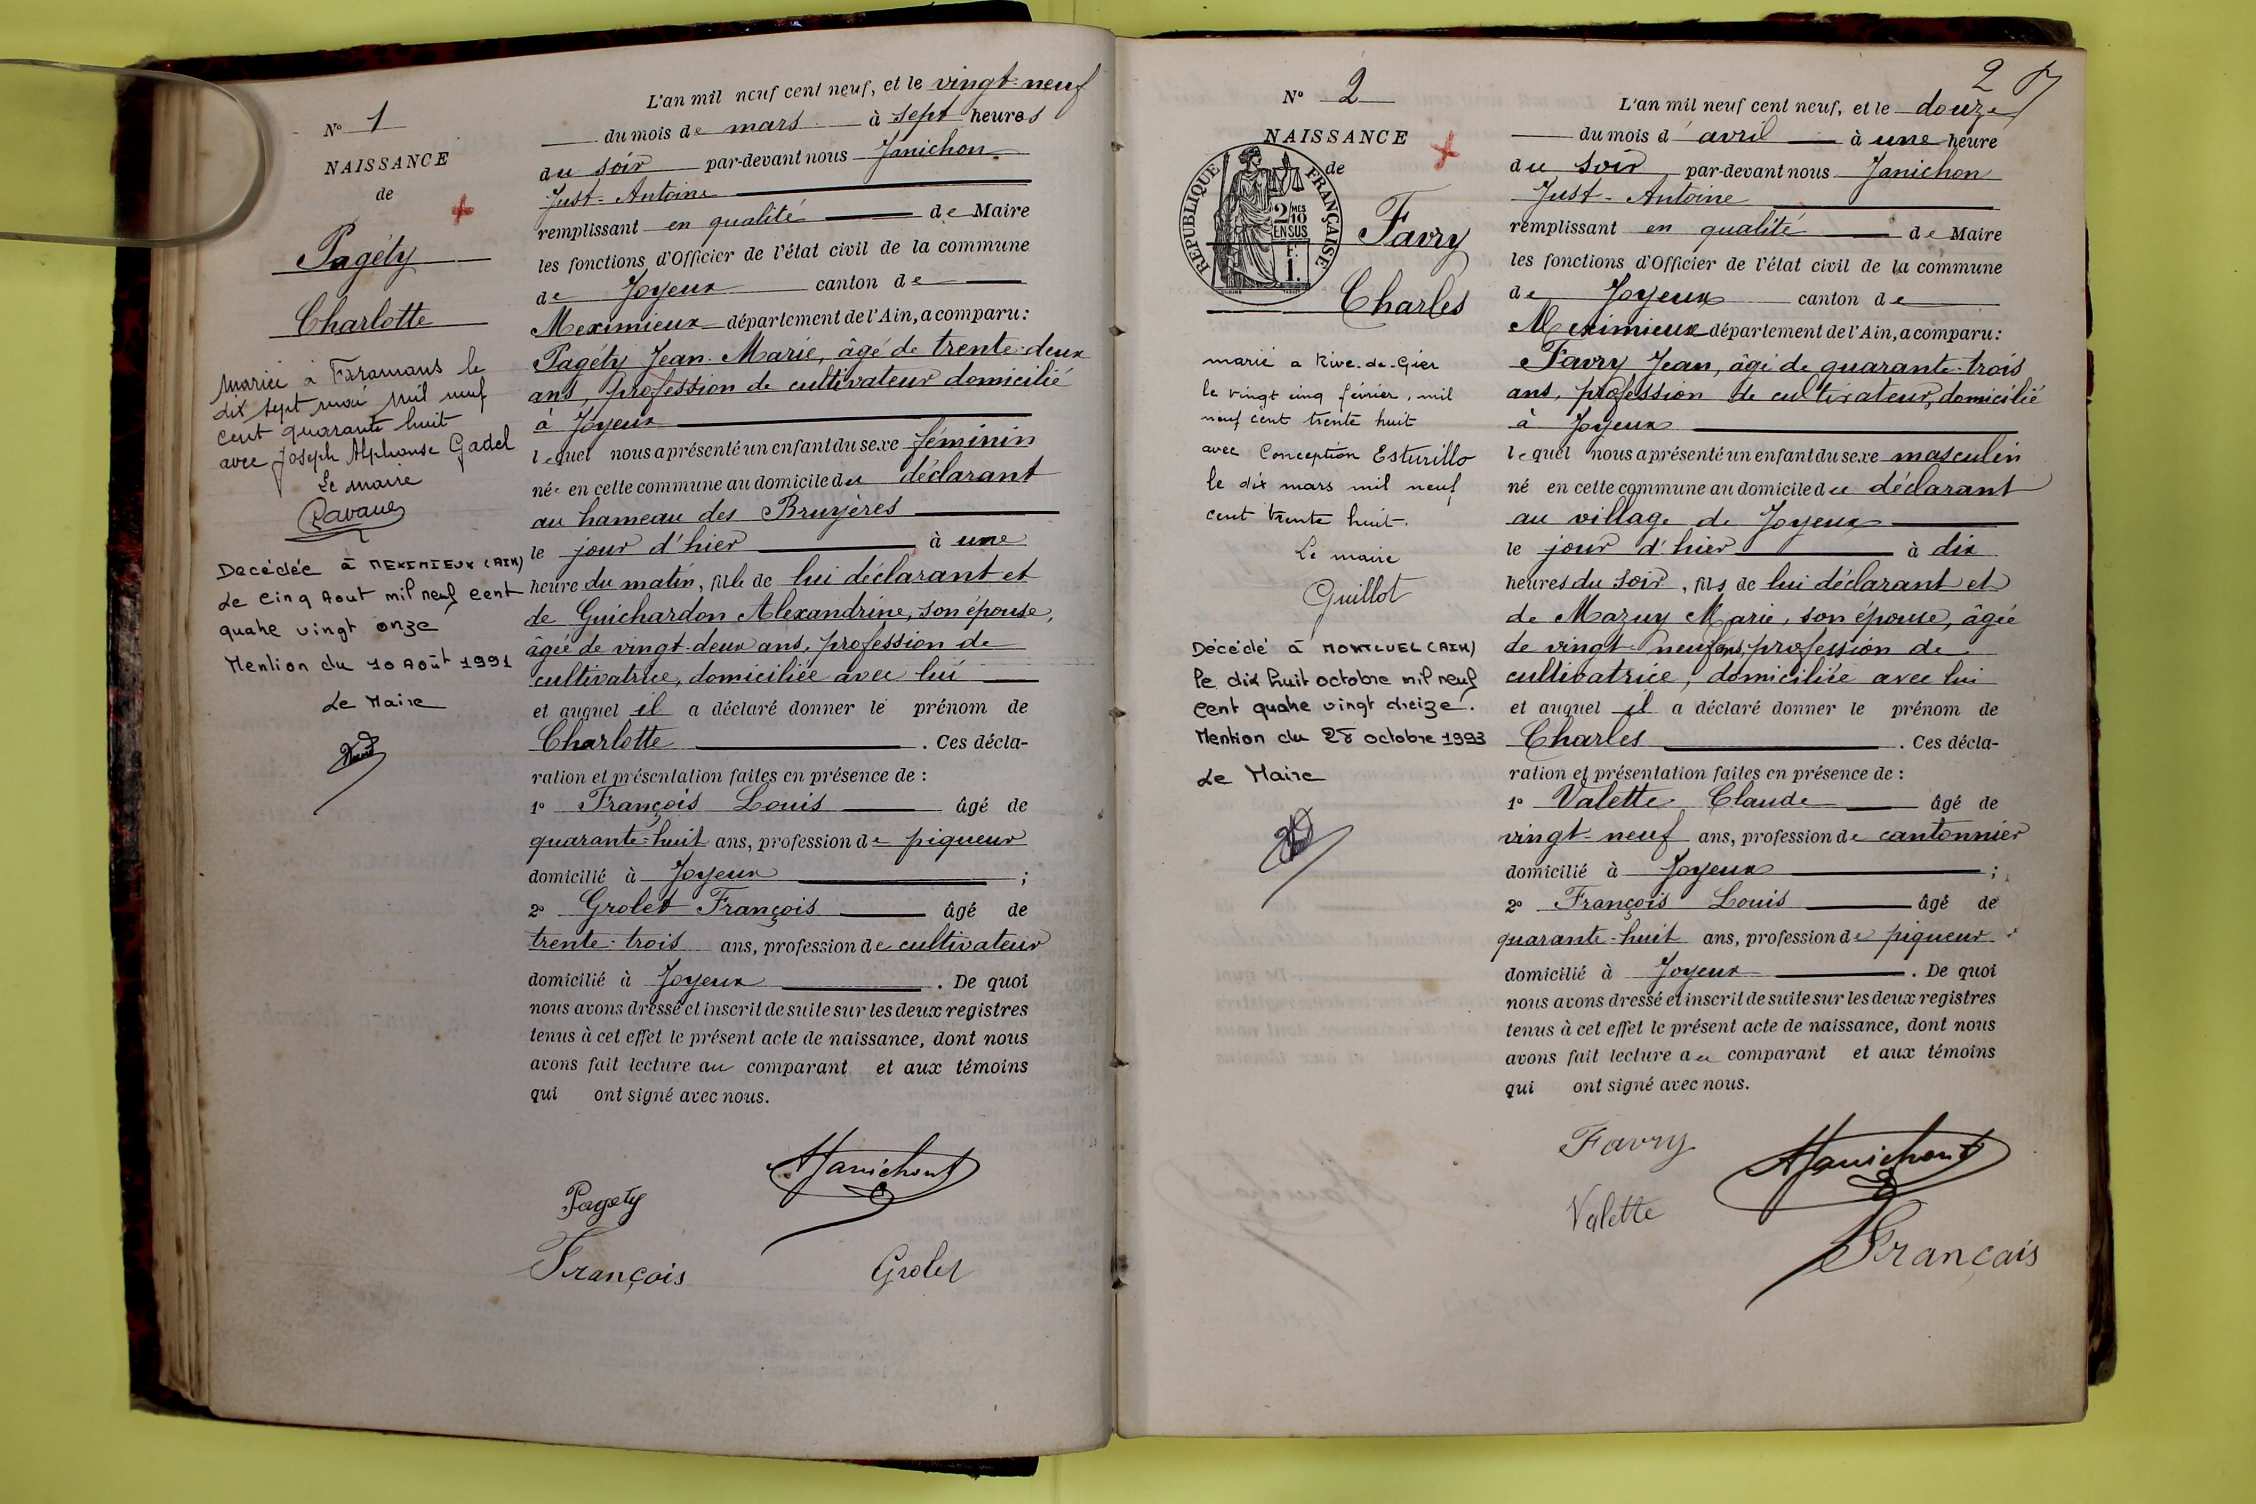 N° 1
NAISSANCE
de
Pagéty
Charlotte
Mariée à Faramans le
dix sept mai mil neuf
cent quarante huit
avec Joseph Alphonse Gadel
Le maire
Ravaue
Decédée à MEXIMIEUX (AIN)
Le Cinq Aout mil neuf Cent
quatre vingt onze
Mention du 10 Août 1991
Le Maire
L'an mil neuf cent neuf, et le vingt-neuf
du mois de mars à sept heures
du soir par-devant nous Janichon
Just-Antoine
remplissant en qualité de Maire
les fonctions d'Officier de l'état civil de la commune
de Joyeux canton de
Meximieux département de l'Ain, a comparu :
Pagéty Jean-Marie, âgé de trente-deux
ans, profession de cultivateur domicilié
à Joyeux
lequel nous a présenté un enfant du sexe féminin
née en cette commune au domicile du déclarant
au hameau des Bruyères
le jour d'hier à une
heure du matin, fille de lui déclarant et
de Guichardon Alexandrine, son épouse,
âgée de vingt-deux ans, profession de
cultivatrice, domiciliée avec lui
et auquel il a déclaré donner le prénom de
Charlotte . Ces décla-
ration et présentation faites en présence de :
1° François Louis âgé de
quarante-huit ans, profession de piqueur
domicilié à Joyeux ;
2° Grolet François âgé de
trente-trois ans, profession de cultivateur
domicilié à Joyeux . De quoi
nous avons dressé et inscrit de suite sur les deux registres
tenus à cet effet le présent acte de naissance, dont nous
avons fait lecture au comparant et aux témoins
qui ont signé avec nous.
AJanichon
Pagety
François Grolet
2
N° 2
NAISSANCE
de
RÉPUBLIQUE FRANÇAISE
2/10 MES
EN SUS
F.
1.
Favry
Charles
marié a Rive-de-Gier
le vingt cinq février, mil
neuf cent trente huit
avec Conception Esturillo
le dix mars mil neuf
cent trente huit.
Le maire
Guillot
Décédé à MONTLUEL (AIN)
le dix huit octobre mil neuf
Cent quatre vingt treize.
Mention du 28 octobre 1993
Le Maire
L'an mil neuf cent neuf, et le douze
du mois d'avril à une heure
du soir par-devant nous Janichon
Just-Antoine
remplissant en qualité de Maire
les fonctions d'Officier de l'état civil de la commune
de Joyeux canton de
Meximieux département de l'Ain, a comparu :
Favry Jean, âgé de quarante-trois
ans, profession de cultivateur, domicilié
à Joyeux
lequel nous a présenté un enfant du sexe masculin
né en cette commune au domicile du déclarant
au village de Joyeux
le jour d'hier à dix
heures du soir, fils de lui déclarant et
de Mazuy Marie, son épouse, âgée
de vingt-neuf ans, profession de
cultivatrice, domiciliée avec lui
et auquel il a déclaré donner le prénom de
Charles . Ces décla-
ration et présentation faites en présence de :
1° Valette Claude âgé de
vingt-neuf ans, profession de cantonnier
domicilié à Joyeux ;
2° François Louis âgé de
quarante-huit ans, profession de piqueur
domicilié à Joyeux . De quoi
nous avons dressé et inscrit de suite sur les deux registres
tenus à cet effet le présent acte de naissance, dont nous
avons fait lecture au comparant et aux témoins
qui ont signé avec nous.
Favry AJanichon
Valette
François